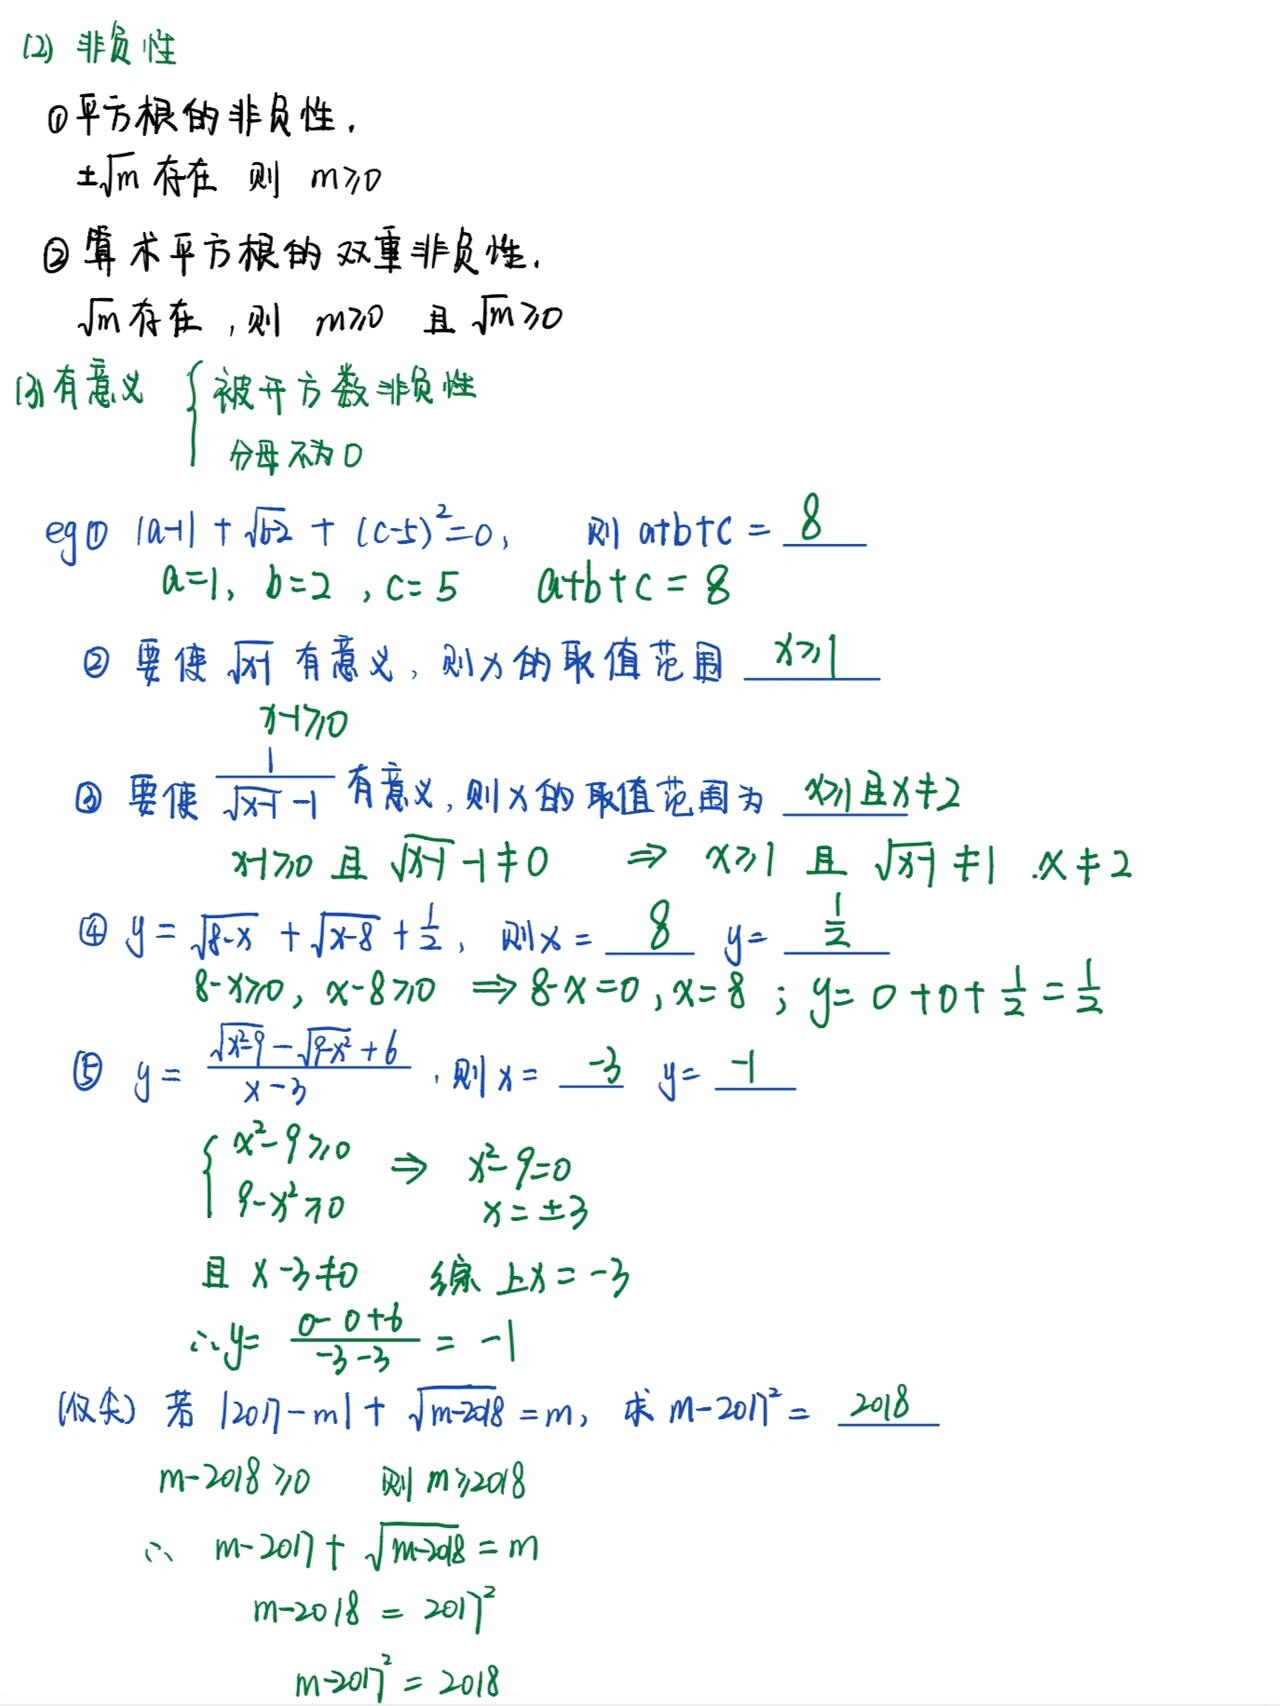 (2) 非负性
①平方根的非负性.
±√m 存在 则 m≥0
②算术平方根的双重非负性.
√m 存在,则 m≥0 且 √m≥0
(3)有意义 { 被开方数非负性
分母不为0
eg① |a-1| + √(b-2) + (c-5)²=0, 则 a+b+c = 8
a=1, b=2, c=5 a+b+c = 8
② 要使 √(x-1) 有意义, 则x的取值范围 x≥1
x-1≥0
③ 要使 1/(√(x-1) -1) 有意义,则x的取值范围为 x≥1且x≠2
x-1≥0 且 √(x-1) -1≠0 ⇒ x≥1 且 √(x-1) ≠1 .x≠2
④ y = √(8-x) + √(x-8) + 1/2, 则x = 8 y= 1/2
8-x≥0, x-8≥0 ⇒ 8-x=0, x=8 ; y= 0+0+1/2 = 1/2
⑤ y = (√(x²-9) - √(9-x²) + 6)/(x-3) , 则x = -3 y= -1
{ x²-9≥0 ⇒ x²-9=0
9-x²≥0 x=±3
且 x-3≠0 综上x=-3
∴y= (0-0+6)/(-3-3) = -1
(仅尖) 若 |2017-m| + √(m-2018) = m, 求 m-2017² = 2018
m-2018≥0 则 m≥2018
∴ m-2017+ √(m-2018) = m
m-2018 = 2017²
m-2017² = 2018